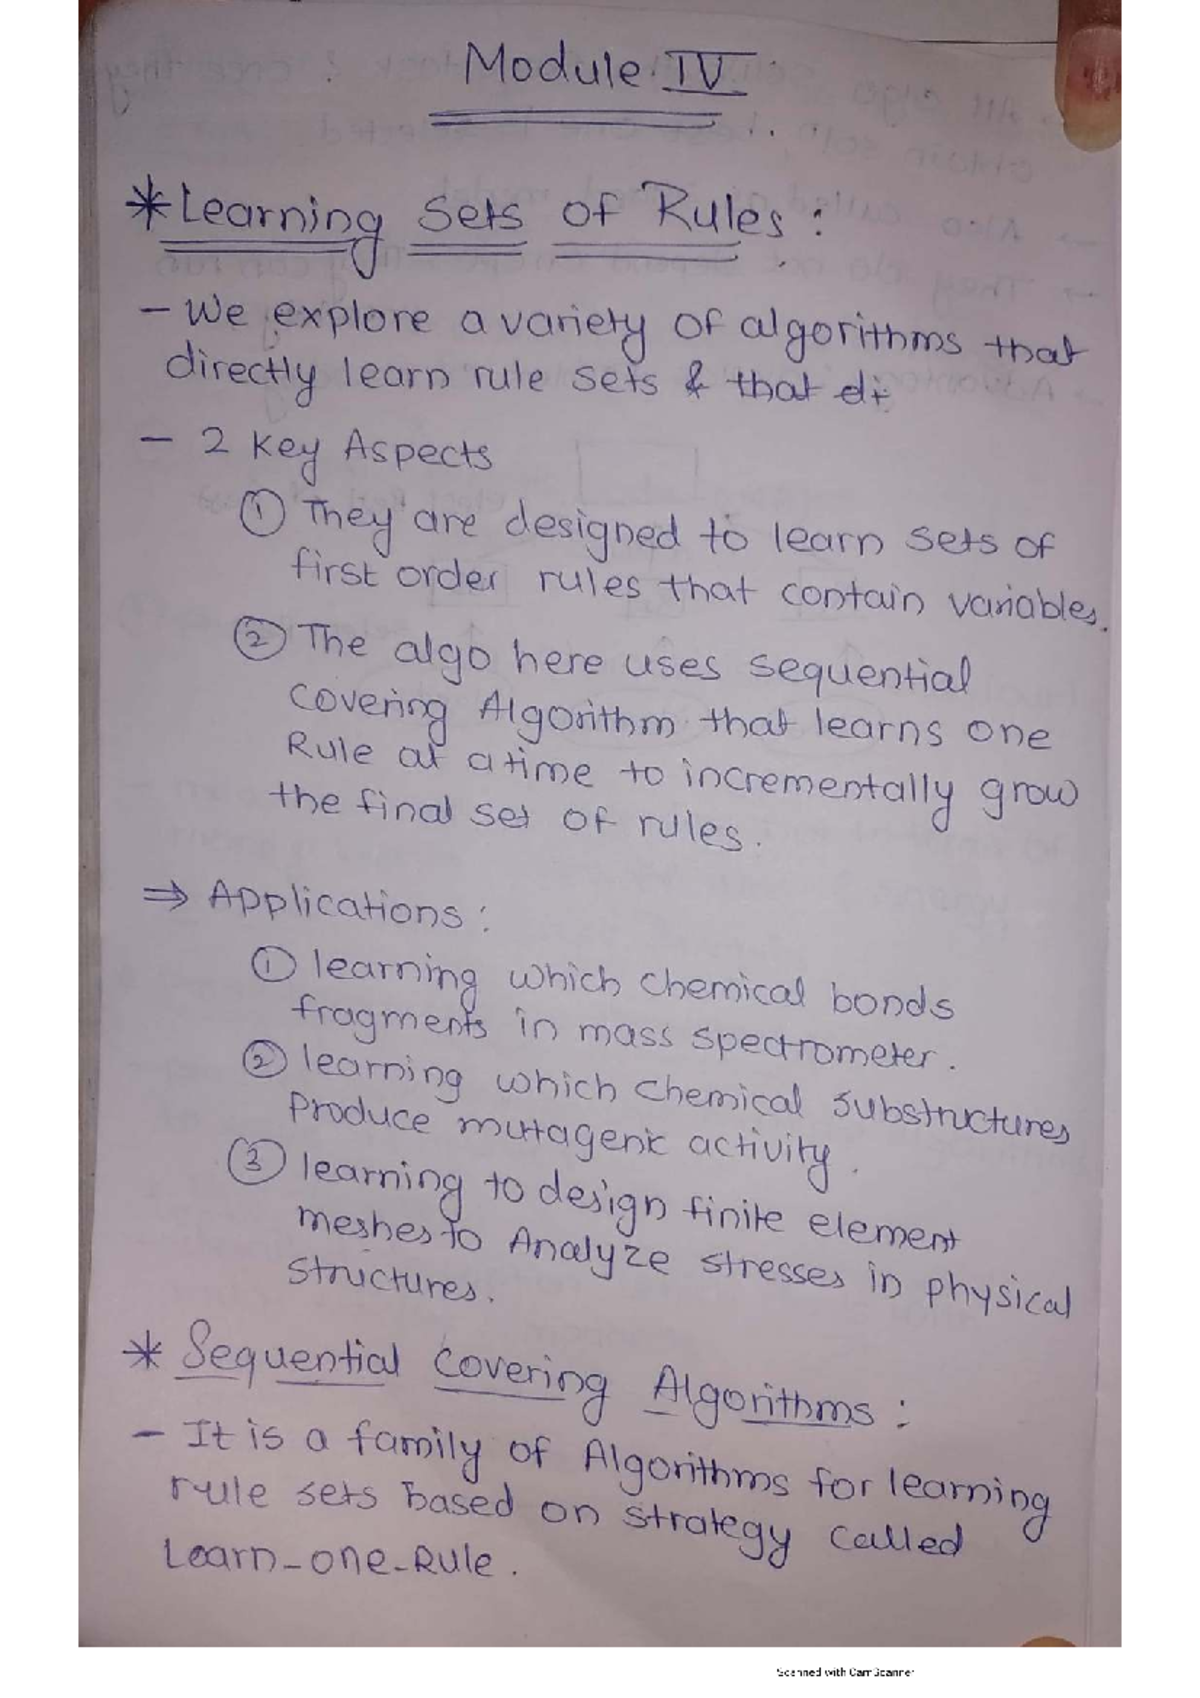 Module IV
* Learning Sets of Rules :
- We explore a variety of algorithms that
directly learn rule sets & that di
- 2 Key Aspects
① They are designed to learn sets of
first order rules that contain variables.
② The algo here uses sequential
Covering Algorithm that learns one
Rule at a time to incrementally grow
the final set of rules.
⇒ Applications :
① learning which chemical bonds
fragments in mass spectrometer.
② learning which chemical substructures
Produce mutagenic activity.
③ learning to design finite element
meshes to Analyze stresses in physical
structures.
* Sequential Covering Algorithms :
- It is a family of Algorithms for learning
rule sets based on strategy called
Learn-one-Rule.
Scanned with CamScanner